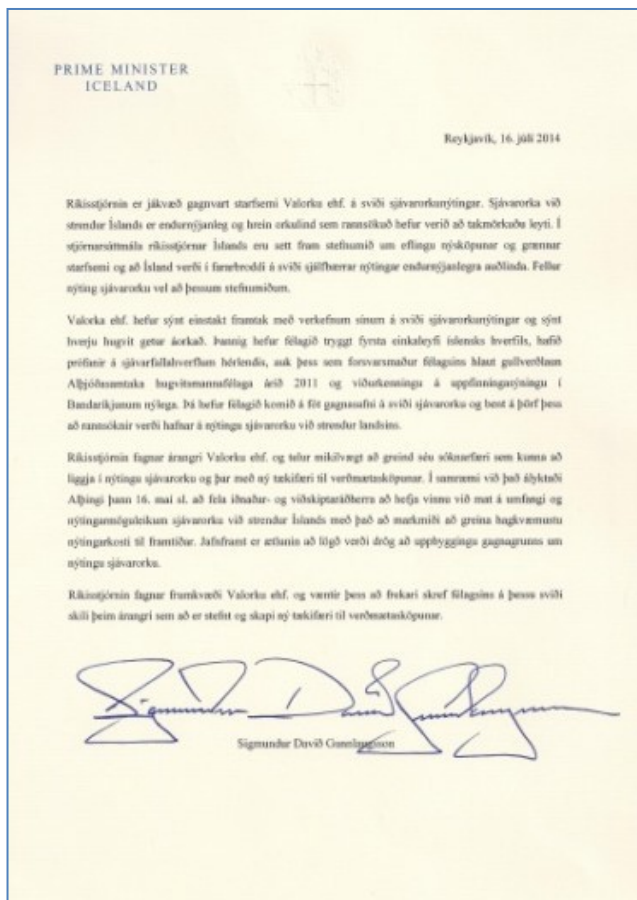 PRIME MINISTER
ICELAND
Reykjavík, 16. júlí 2014
Ríkisstjórnin er jákvæð gagnvart starfsemi Valorku ehf. á sviði sjávarorkunýtingar. Sjávarorka við
strendur Íslands er endurnýjanleg og hrein orkulind sem rannsökuð hefur verið að takmörkuðu leyti. Í
stjórnarsáttmála ríkisstjórnar Íslands eru sett fram stefnumið um eflingu nýsköpunar og grænnar
starfsemi og að Ísland verði í fararbroddi á sviði sjálfbærrar nýtingar endurnýjanlegra auðlinda. Fellur
nýting sjávarorku vel að þessum stefnumiðum.
Valorka ehf. hefur sýnt einstakt framtak með verkefnum sínum á sviði sjávarorkunýtingar og sýnt
hverju hugvit getur áorkað. Þannig hefur félagið tryggt fyrsta einkaleyfi íslensks hverfils, hafið
prófanir á sjávarfallahverflum hérlendis, auk þess sem forsvarsmaður félagsins hlaut gullverðlaun
Alþjóðasamtaka hugvitsmannafélaga árið 2011 og viðurkenningu á uppfinningasýningu í
Bandaríkjunum nýlega. Þá hefur félagið komið á fót gagnasafni á sviði sjávarorku og bent á þörf þess
að rannsóknir verði hafnar á nýtingu sjávarorku við strendur landsins.
Ríkisstjórnin fagnar árangri Valorku ehf. og telur mikilvægt að greind séu sóknarfæri sem kunna að
liggja í nýtingu sjávarorku og þar með ný tækifæri til verðmætasköpunar. Í samræmi við það ályktaði
Alþingi þann 16. maí sl. að fela iðnaðar- og viðskiptaráðherra að hefja vinnu við mat á umfangi og
nýtingarmöguleikum sjávarorku við strendur Íslands með það að markmiði að greina hagkvæmustu
nýtingarkosti til framtíðar. Jafnframt er ætlunin að lögð verði drög að uppbyggingu gagnagrunns um
nýtingu sjávarorku.
Ríkisstjórnin fagnar frumkvæði Valorku ehf. og væntir þess að frekari skref félagsins á þessu sviði
skili þeim árangri sem að er stefnt og skapi ný tækifæri til verðmætasköpunar.
Sigmundur Davíð Gunnlaugsson